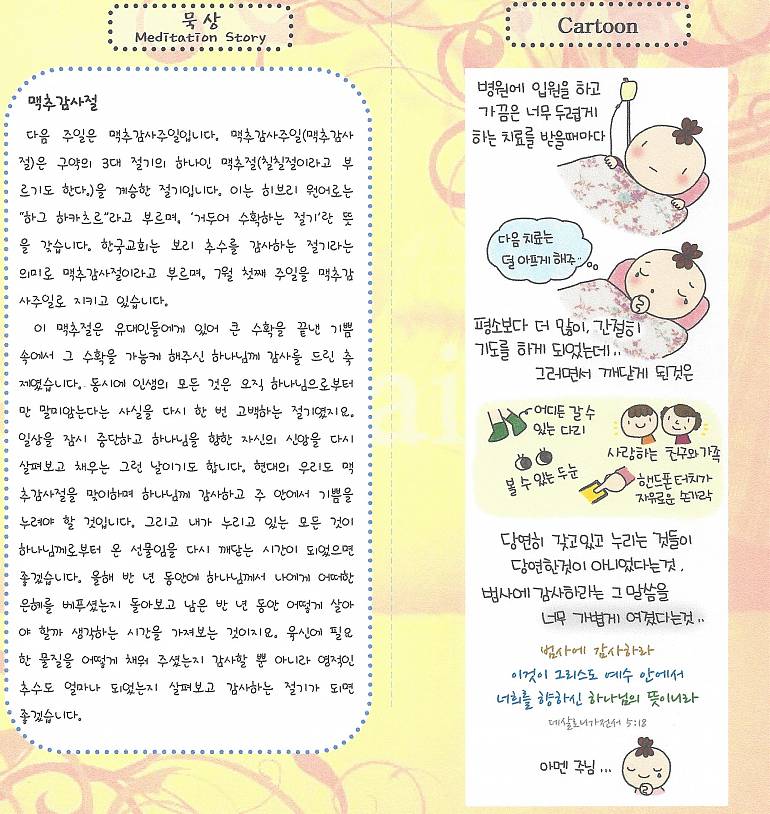 묵상
Meditation Story
맥추감사절
다음 주일은 맥추감사주일입니다. 맥추감사주일(맥추감사
절)은 구약의 3대 절기의 하나인 맥추절(칠칠절이라고 부
르기도 한다.)을 계승한 절기입니다. 이는 히브리 원어로는
"하그 하카츠르"라고 부르며, '거두어 수확하는 절기'란 뜻
을 갖습니다. 한국교회는 보리 추수를 감사하는 절기라는
의미로 맥추감사절이라고 부르며, 7월 첫째 주일을 맥추감
사주일로 지키고 있습니다.
이 맥추절은 유대인들에게 있어 큰 수확을 끝낸 기쁨
속에서 그 수확을 가능케 해주신 하나님께 감사를 드린 축
제였습니다. 동시에 인생의 모든 것은 오직 하나님으로부터
만 말미암는다는 사실을 다시 한 번 고백하는 절기였지요.
일상을 잠시 중단하고 하나님을 향한 자신의 신앙을 다시
살펴보고 채우는 그런 날이기도 합니다. 현대의 우리도 맥
추감사절을 맞이하며 하나님께 감사하고 주 안에서 기쁨을
누려야 할 것입니다. 그리고 내가 누리고 있는 모든 것이
하나님께로부터 온 선물임을 다시 깨닫는 시간이 되었으면
좋겠습니다. 올해 반 년 동안에 하나님께서 나에게 어떠한
은혜를 베푸셨는지 돌아보고 남은 반 년 동안 어떻게 살아
야 할까 생각하는 시간을 가져보는 것이지요. 육신에 필요
한 물질을 어떻게 채워 주셨는지 감사할 뿐 아니라 영적인
추수도 얼마나 되었는지 살펴보고 감사하는 절기가 되면
좋겠습니다.
Cartoon
병원에 입원을 하고
가끔은 너무 두렵게
하는 치료를 받을때마다
다음 치료는
덜 아프게 해주..
평소보다 더 많이, 간절히
기도를 하게 되었는데..
그러면서 깨닫게 된것은
어디든 갈 수
있는 다리
사랑하는 친구와 가족
볼 수 있는 두눈
핸드폰 터치가
자유로운 손가락
당연히 갖고있고 누리는 것들이
당연한것이 아니었다는것,
범사에 감사하라는 그 말씀을
너무 가볍게 여겼다는것..
범사에 감사하라
이것이 그리스도 예수 안에서
너희를 향하신 하나님의 뜻이니라
데살로니가전서 5:18
아멘 주님...